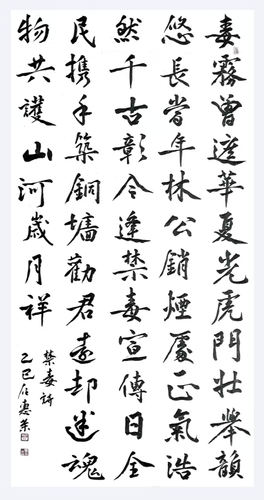 毒霧曾遮華夏光虎門壯舉韻
悠長當年林公銷煙處正氣浩
然千古彰今逢禁毒宣傳日全
民携手築銅墻勸君遠却迷魂
物共護山河歲月祥
禁毒詩
乙巳